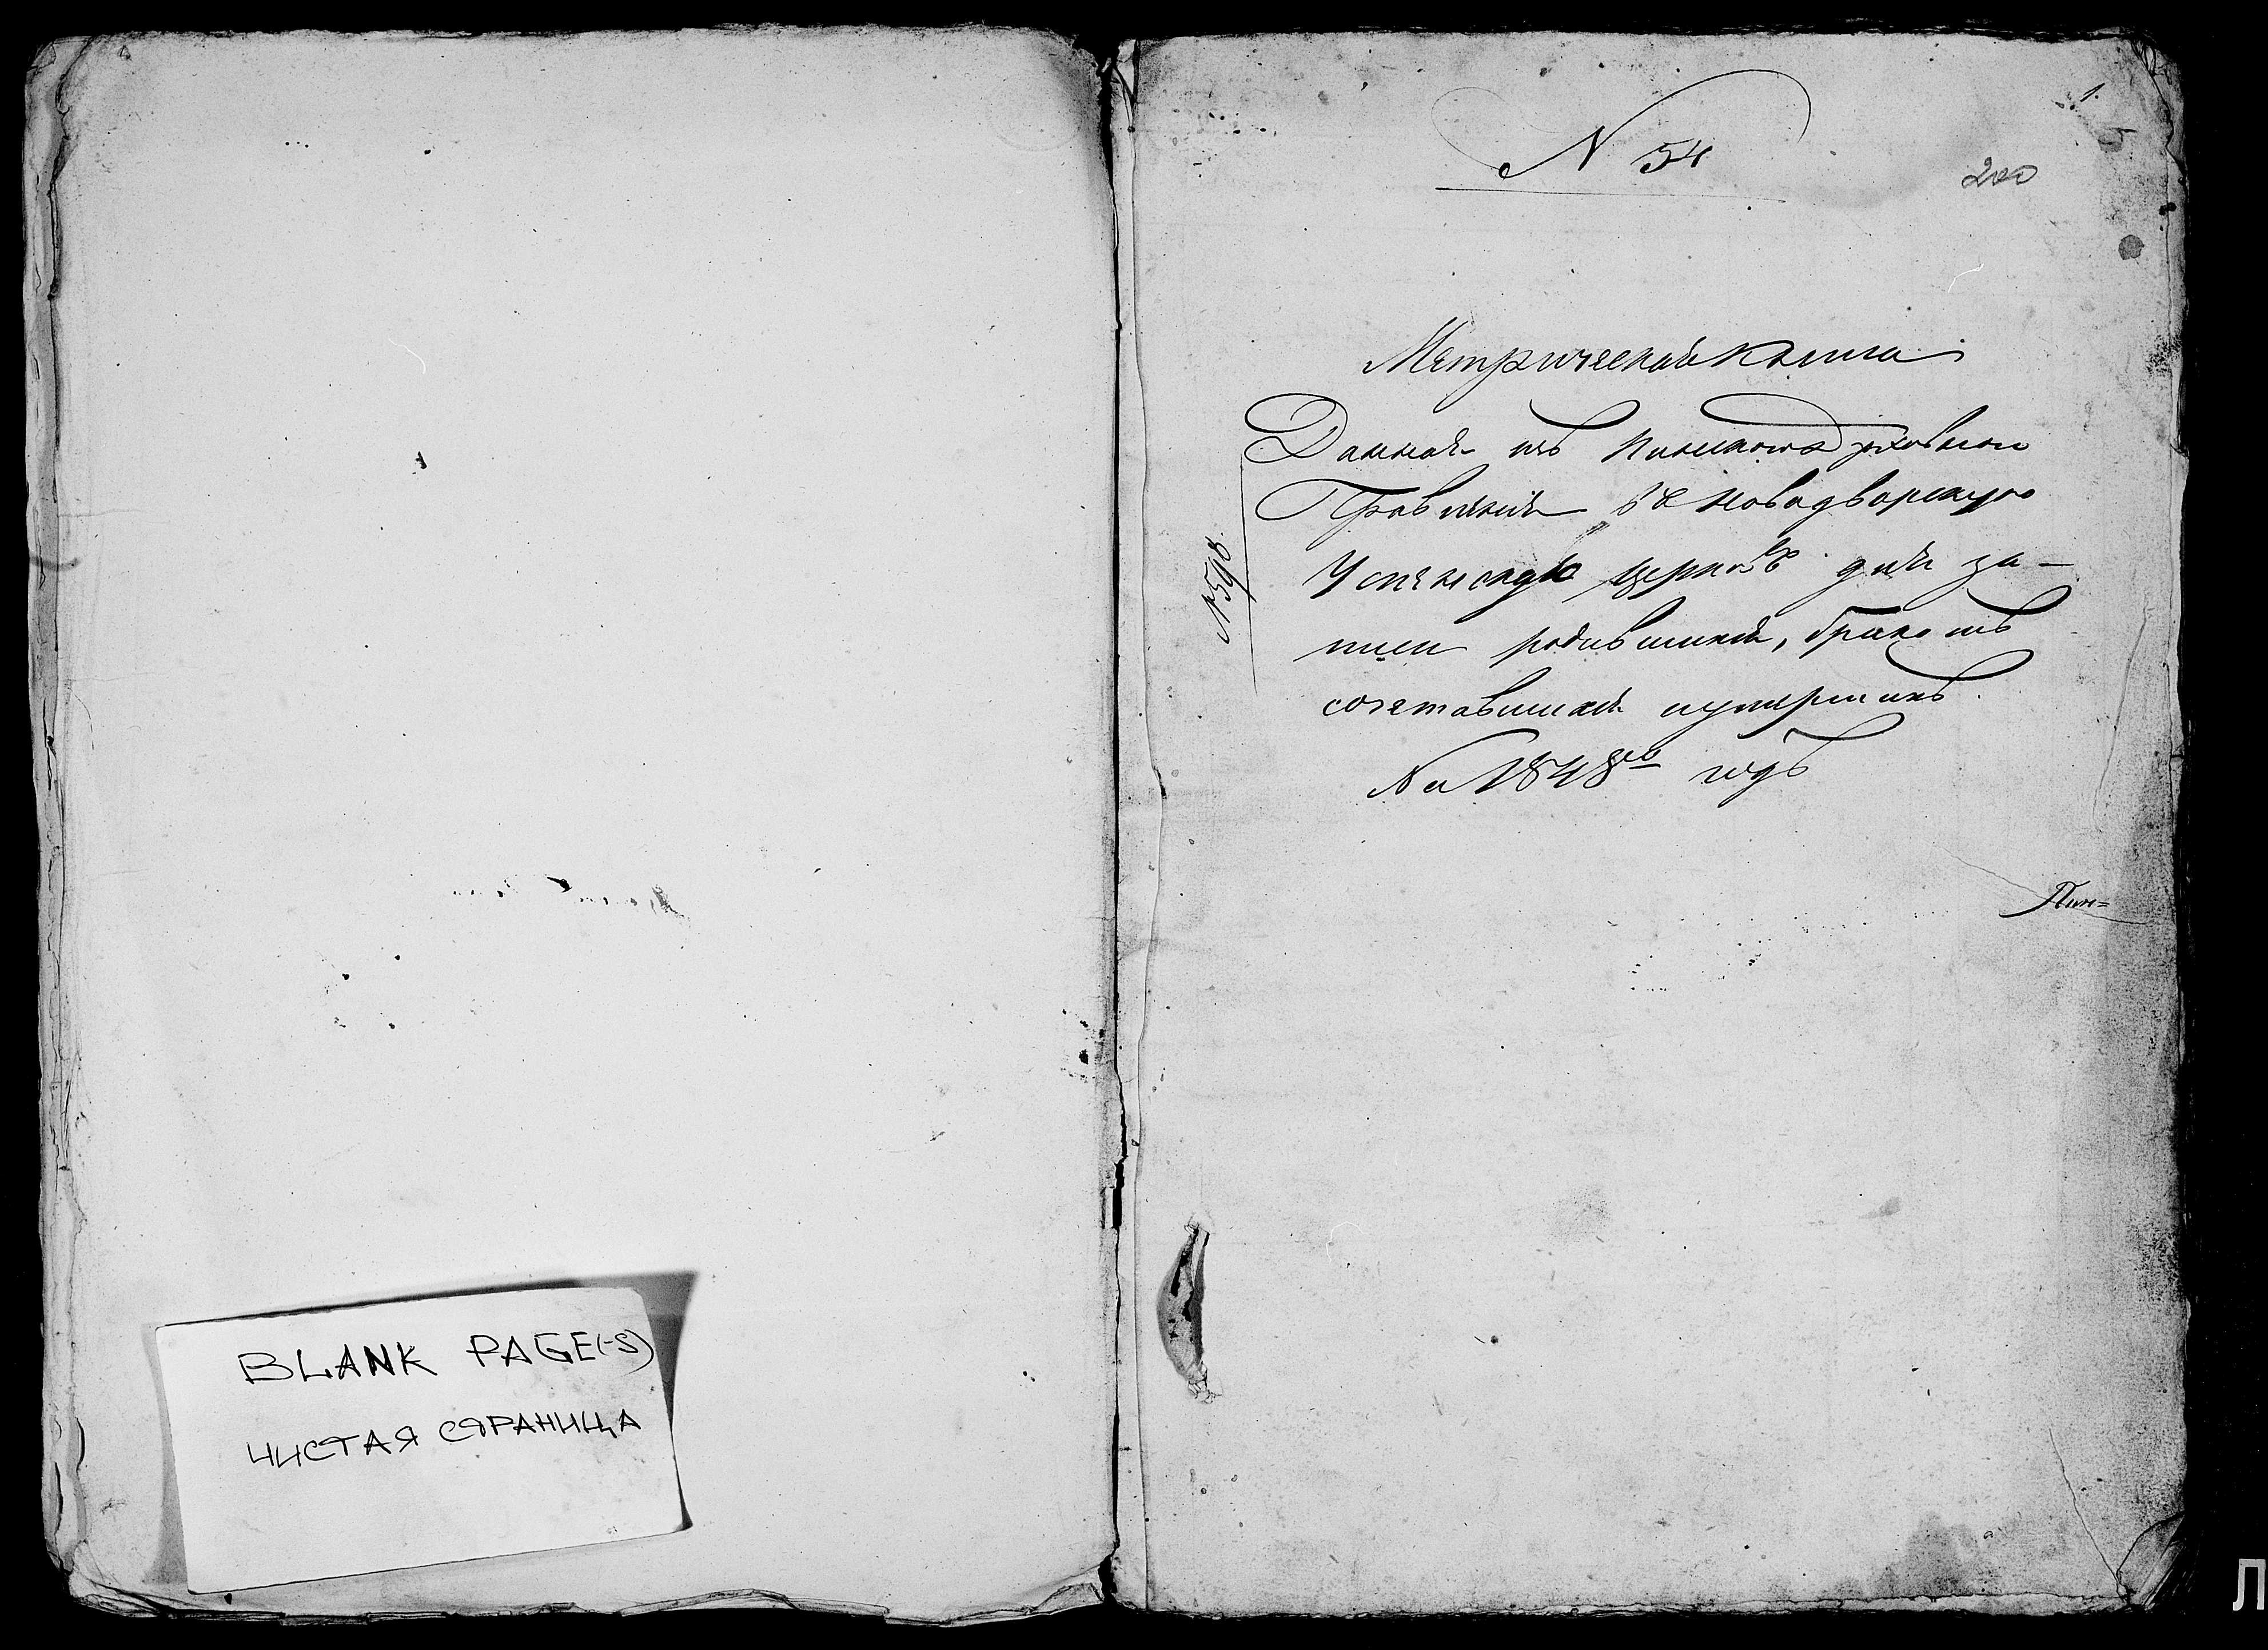 BLANK PAGE(-S)
ЧИСТАЯ СТРАНИЦА
1.
N 54
200
Метрическая книга
Данная изъ Пинскаго Духовнаго
Правленія въ Новодворскую
Успенскую церковь для за-
писи родившихся, бракомъ
сочетавшихся и умершихъ
На 1848й годъ
Пин=
Л